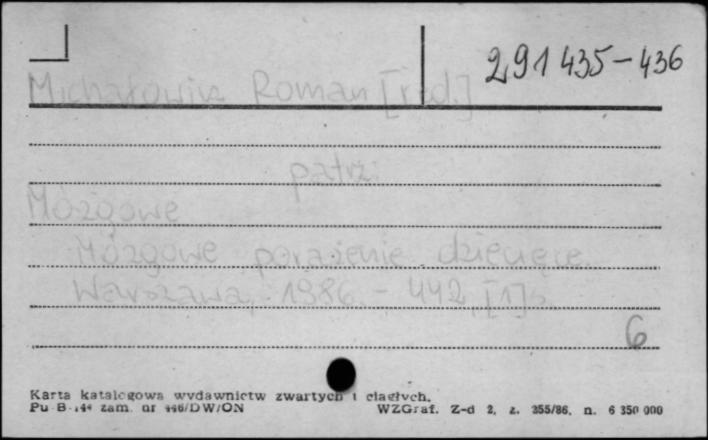 291 435-436
Michałowicz Roman [red.]
patrz:
Mózgowe
Mózgowe porażenie dziecięce.
Warszawa, 1986. - 442, [1] s.
6
Karta katalogowa wydawnictw zwartych i ciągłych.
Pu-B-144 zam. nr 446/DW/ON WZGraf. Z-d 2, z. 355/86, n. 6 350 000